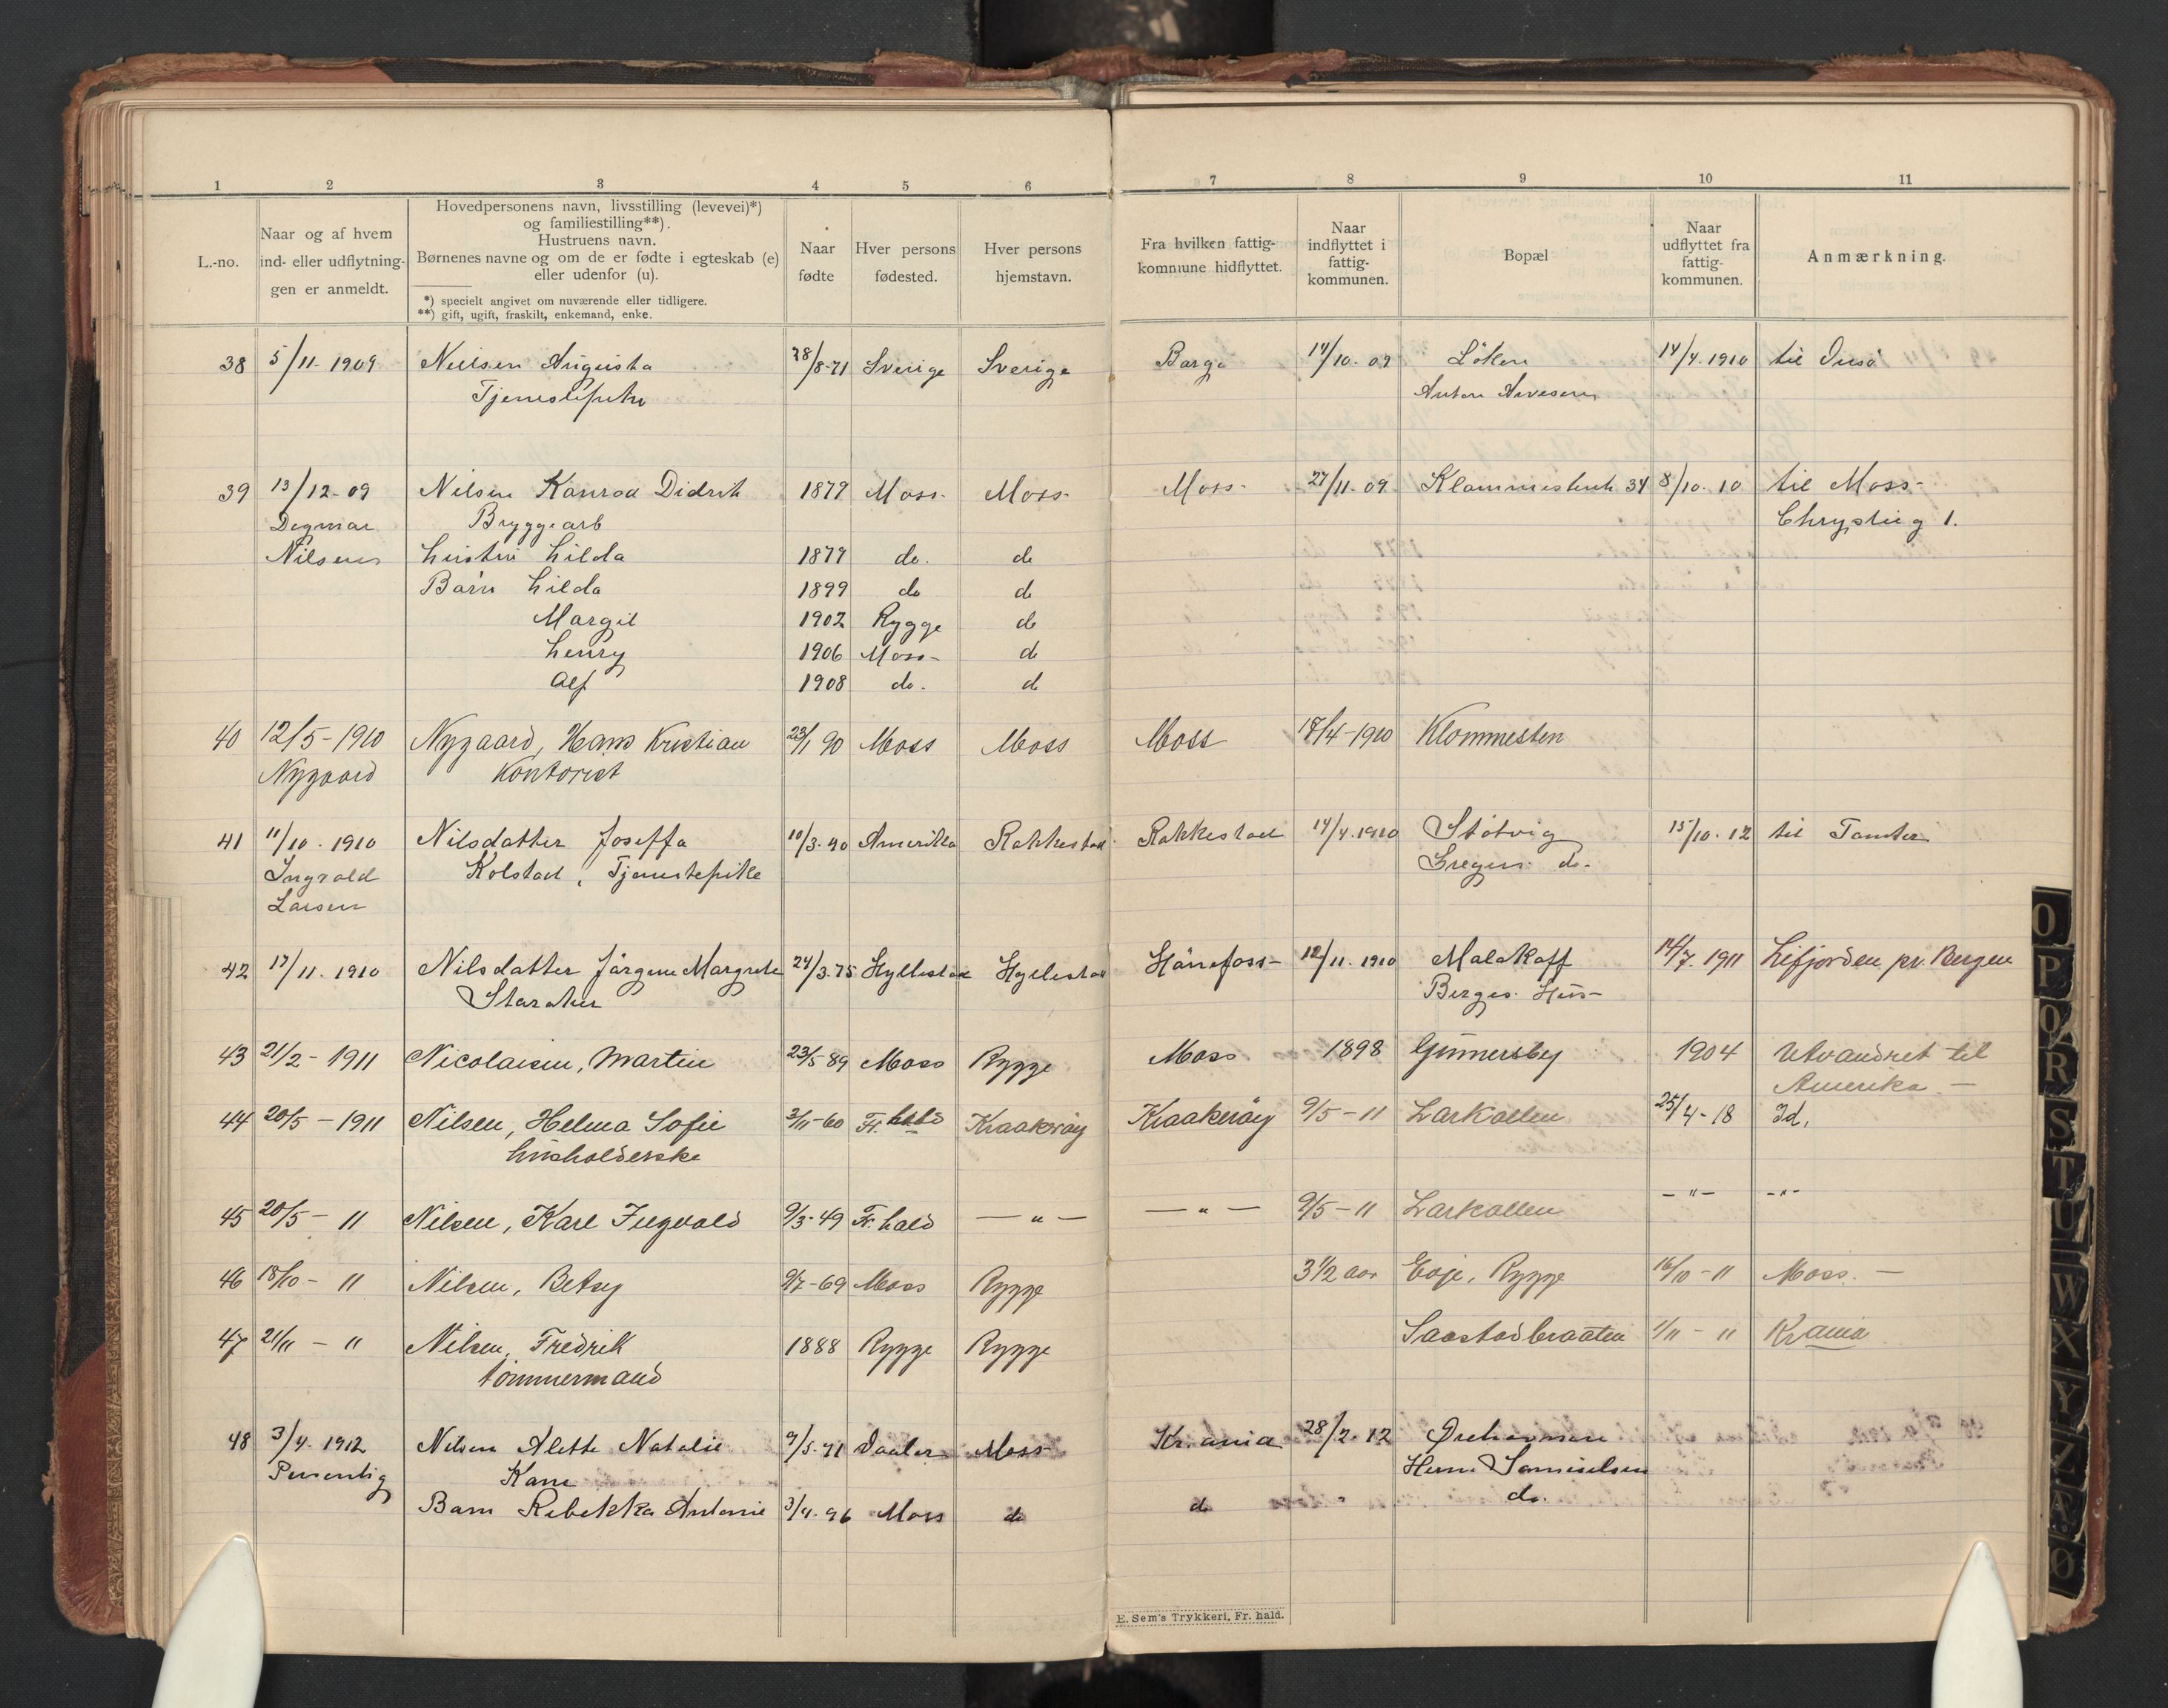 1 2 3 4 5 6 7 8 9 10 11
L.-no.
Naar og af hvem
ind- eller udflytnin-
gen er anmeldt.
Hovedpersonens navn, livsstilling (levevei)*)
og familiestilling**).
Hustruens navn.
Børnenes navne og om de er fødte i egteskab (e)
eller udenfor (u).
*) specielt angivet om nuværende eller tidligere.
**) gift, ugift, fraskilt, enkemand, enke.
Naar
fødte
Hver persons
fødested.
Hver persons
hjemstavn.
Fra hvilken fattig-
kommune hidflyttet.
Naar
indflyttet i
fattig-
kommunen.
Bopæl
Naar
udflyttet fra
fattig-
kommunen.
Anmærkning.
38 5/11. 1909 Nilsen Augusta 28/8-71 Sverige Sverige Borge 14/10. 09 Löken 14/4. 1910 til
Tjenestepike Anton Arvesen
39 13/12-09 Nilsen Konrad Didrik 1879 Moss Moss Moss 27/11. 09 34 8/10. 10 til Moss
Dagmar Bryggearb 1.
Nilsen hustru hilda 1879 do. do
Barn hilda 1899 do do
Margit 1902 Rygge do
henry 1906 Moss do
Alf 1908 do. do
40 12/5-1910 Nygaard, Hans Kristian 23/1 90 Moss Moss Moss 18/4-1910 Klommesten
Nygaard Kontorist
41 11/10. 1910 Nilsdatter Joseffa 10/3-90 Amerika Rakkestad Rakkestad 14/4. 1910 Støtvig 15/10. 12 til Tomter
Ingvald Kolstad, Tjenestepike Gregers do.
Larsen
42 17/11. 1910 Nilsdatter Jørgine Margrete 24/3. 75 Hyllestad Hyllestad Hönefoss 12/11. 1910 Malakoff 14/7. 1911 Lifjorden pr. Bergen
Staraker Berges Hus
43 21/2-1911 Nicolaisen, Martin 23/5-89 Moss Rygge Moss 1898 Gunnersby 1904 Utvandret til
Amerika —
44 20/5-1911 Nilsen, Helma Sofie 3/11-60 Fr. hald Kraakerøy Kraakerøy 9/5-11 Larkollen 25/4-18 Id.
husholderske
45 20/5- 11 Nilsen, Karl Ingvald 9/3-49 Fr. hald — " — — " — 9/5-11 Larkollen — " — - " -
46 18/10- 11 Nilsen, Betsy 9/7-69 Moss Rygge 3 1/2 aar Evje, Rygge 16/10-11 Moss. —
47 21/11 - 11 Nilsen, Fredrik 1888 Rygge Rygge Saastadbraaten 1/11-11 Krania
tömmermand
48 3/4. 1912 Nilsen Alette Natalie 9/5-71 Vaaler Moss Kr.ania 28/2. 12
Personlig Kone Samuelsen
Barn Rebekka Antonie 3/4. 96 Moss do do " do.
E. Sem's Trykkeri, Fr. hald.
O
P
Q
R
S
T
U
W
X
Y
Z
Ø